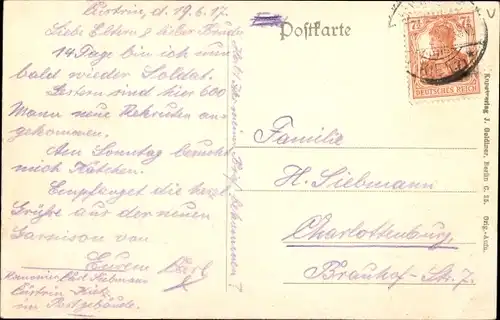 Cüstrin, d. 19.6.17.
Liebe Eltern & lieber Bruder
14 Tage bin ich nun
bald wieder Soldat.
Gestern sind hier 600
Mann neue Rekruten an-
gekommen.
Am Sonntag besucht
mich Kätchen.
Empfanget die herzl.
Grüße aus der neuen
Garnison von
Eurem Karl
Kanonier Karl Siebmann
Cüstrin Kietz
im Postgebäude.
Habt Ihr meinen Brief bekommen?
Postkarte
7½
DEUTSCHES REICH
Familie
H. Siebmann
Charlottenburg
Brauhof-Str. 7.
J. Goldiner, Berlin C. 25. Orig.-Aufn.